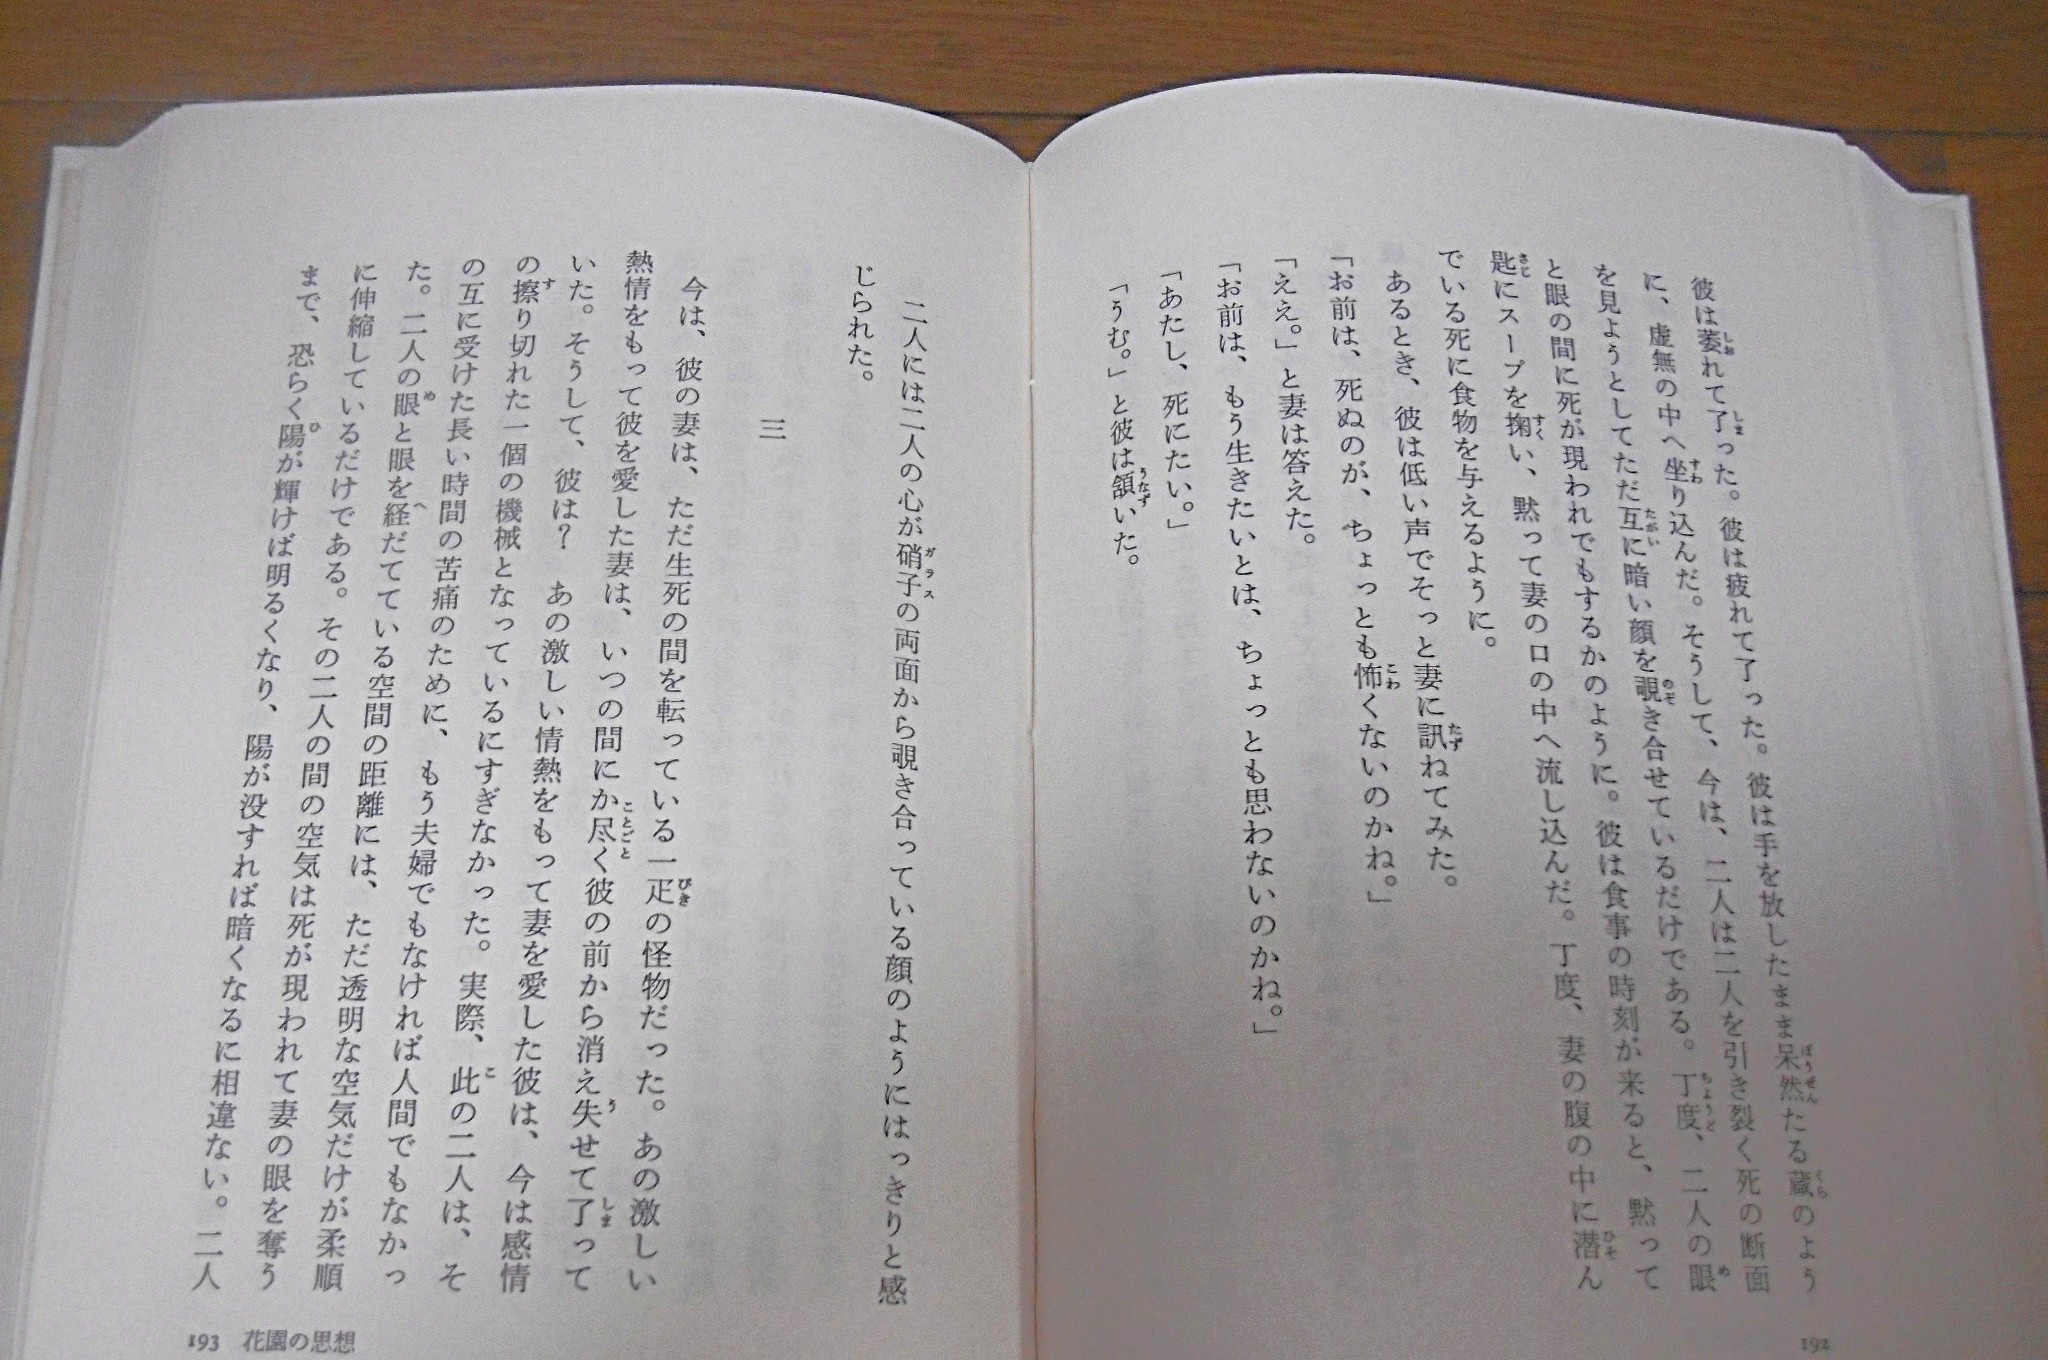 彼は萎れて了った。彼は疲れて了った。彼は手を放したまま呆然たる蔵のよう
に、虚無の中へ坐り込んだ。そうして、今は、二人は二人を引き裂く死の断面
を見ようとしてただ互に暗い顔を覗き合せているだけである。丁度、二人の眼
と眼の間に死が現われでもするかのように。彼は食事の時刻が来ると、黙って
匙にスープを掬い、黙って妻の口の中へ流し込んだ。丁度、妻の腹の中に潜ん
でいる死に食物を与えるように。
あるとき、彼は低い声でそっと妻に訊ねてみた。
「お前は、死ぬのが、ちょっとも怖くないのかね。」
「ええ。」と妻は答えた。
「お前は、もう生きたいとは、ちょっとも思わないのかね。」
「あたし、死にたい。」
「うむ。」と彼は頷いた。
192
二人には二人の心が硝子の両面から覗き合っている顔のようにはっきりと感
じられた。
三
今は、彼の妻は、ただ生死の間を転っている一疋の怪物だった。あの激しい
熱情をもって彼を愛した妻は、いつの間にか尽く彼の前から消え失せて了って
いた。そうして、彼は？　あの激しい情熱をもって妻を愛した彼は、今は感情
の擦り切れた一個の機械となっているにすぎなかった。実際、此の二人は、そ
の互に受けた長い時間の苦痛のために、もう夫婦でもなければ人間でもなかっ
た。二人の眼と眼を経だてている空間の距離には、ただ透明な空気だけが柔順
に伸縮しているだけである。その二人の間の空気は死が現われて妻の眼を奪う
まで、恐らく陽が輝けば明るくなり、陽が没すれば暗くなるに相違ない。二人
193　花園の思想